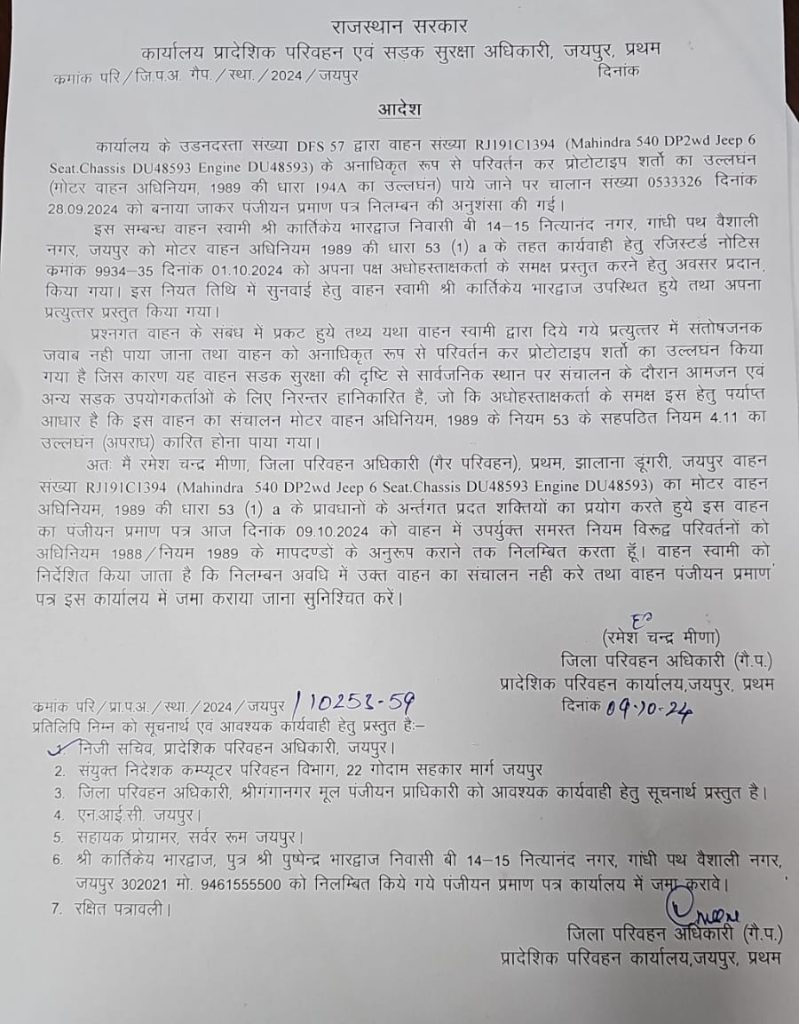 राजस्थान सरकार
कार्यालय प्रादेशिक परिवहन एवं सड़क सुरक्षा अधिकारी, जयपुर, प्रथम
कमांक परि/जि.प.अ. गैप./स्था./2024/जयपुर दिनांक
आदेश
कार्यालय के उडनदस्ता संख्या DFS 57 द्वारा वाहन संख्या RJ191C1394 (Mahindra 540 DP2wd Jeep 6
Seat.Chassis DU48593 Engine DU48593) के अनाधिकृत रूप से परिवर्तन कर प्रोटोटाइप शर्तो का उल्लघंन
(मोटर वाहन अधिनियम, 1989 की धारा 194A का उल्लघंन) पाये जाने पर चालान संख्या 0533326 दिनांक
28.09.2024 को बनाया जाकर पंजीयन प्रमाण पत्र निलम्बन की अनुशंसा की गई।
इस सम्बन्ध वाहन स्वामी श्री कार्तिकेय भारद्वाज निवासी बी 14–15 नित्यानंद नगर, गांधी पथ वैशाली
नगर, जयपुर को मोटर वाहन अधिनियम 1989 की धारा 53 (1) a के तहत कार्यवाही हेतु रजिस्टर्ड नोटिस
कमाक 9934–35 दिनांक 01.10.2024 को अपना पक्ष अधोहस्ताक्षकर्ता के समक्ष प्रस्तुत करने हेतु अवसर प्रदान
किया गया। इस नियत तिथि में सुनवाई हेतु वाहन स्वामी श्री कार्तिकेय भारद्वाज उपस्थित हुये तथा अपना
प्रत्युत्तर प्रस्तुत किया गया।
प्रश्नगत वाहन के संबंध में प्रकट हुये तथ्य यथा वाहन स्वामी द्वारा दिये गये प्रत्युत्तर में संतोषजनक
जवाब नही पाया जाना तथा वाहन को अनाधिकृत रूप से परिवर्तन कर प्रोटोटाइप शर्तो का उल्लघंन किया
गया है जिस कारण यह वाहन सडक सुरक्षा की दृष्टि से सार्वजनिक स्थान पर संचालन के दौरान आमजन एवं
अन्य सडक उपयोगकर्ताओं के लिए निरन्तर हानिकारित है, जो कि अधोहस्ताक्षकर्ता के समक्ष इस हेतु पर्याप्त
आधार है कि इस वाहन का संचालन मोटर वाहन अधिनियम, 1989 के नियम 53 के सहपठित नियम 4.11 का
उल्लघंन (अपराध) कारित होना पाया गया।
अतः मैं रमेश चन्द्र मीणा, जिला परिवहन अधिकारी (गैर परिवहन), प्रथम, झालाना डूंगरी, जयपुर वाहन
संख्या RJ191C1394 (Mahindra 540 DP2wd Jeep 6 Seat.Chassis DU48593 Engine DU48593) का मोटर वाहन
अधिनियम, 1989 की धारा 53 (1) a के प्रावधानों के अर्न्तगत प्रदत शक्तियों का प्रयोग करते हुये इस वाहन
का पंजीयन प्रमाण पत्र आज दिनांक 09.10.2024 को वाहन में उपर्युक्त समस्त नियम विरूद्व परिवर्तनों को
अधिनियम 1988/नियम 1989 के मापदण्डो के अनुरूप कराने तक निलम्बित करता हूँ। वाहन स्वामी को
निर्देशित किया जाता है कि निलम्बन अवधि में उक्त वाहन का संचालन नही करे तथा वाहन पंजीयन प्रमाण
पत्र इस कार्यालय में जमा कराया जाना सुनिश्चित करें।
(रमेश चन्द्र मीणा)
जिला परिवहन अधिकारी (गै.प.)
प्रादेशिक परिवहन कार्यालय,जयपुर, प्रथम
कमांक परि/प्रा.प.अ./स्था./2024/जयपुर/10253-59 दिनांक 09.10-24
प्रतिलिपि निम्न को सूचनार्थ एवं आवश्यक कार्यवाही हेतु प्रस्तुत है:–
निजी सचिव, प्रादेशिक परिवहन अधिकारी, जयपुर।
2. संयुक्त निदेशक कम्प्यूटर परिवहन विभाग, 22 गोदाम सहकार मार्ग जयपुर
3. जिला परिवहन अधिकारी, श्रीगंगानगर मूल पंजीयन प्राधिकारी को आवश्यक कार्यवाही हेतु सूचनार्थ प्रस्तुत है।
4. एन.आई.सी. जयपुर।
5. सहायक प्रोग्रामर, सर्वर रूम जयपुर।
6. श्री कार्तिकेय भारद्वाज, पुत्र श्री पुष्पेन्द्र भारद्वाज निवासी बी 14–15 नित्यानंद नगर, गांधी पथ वैशाली नगर,
जयपुर 302021 मो. 9461555500 को निलम्बित किये गये पंजीयन प्रमाण पत्र कार्यालय में जमा करावे।
7. रक्षित पत्रावली।
जिला परिवहन अधिकारी (गै.प.)
प्रादेशिक परिवहन कार्यालय,जयपुर, प्रथम